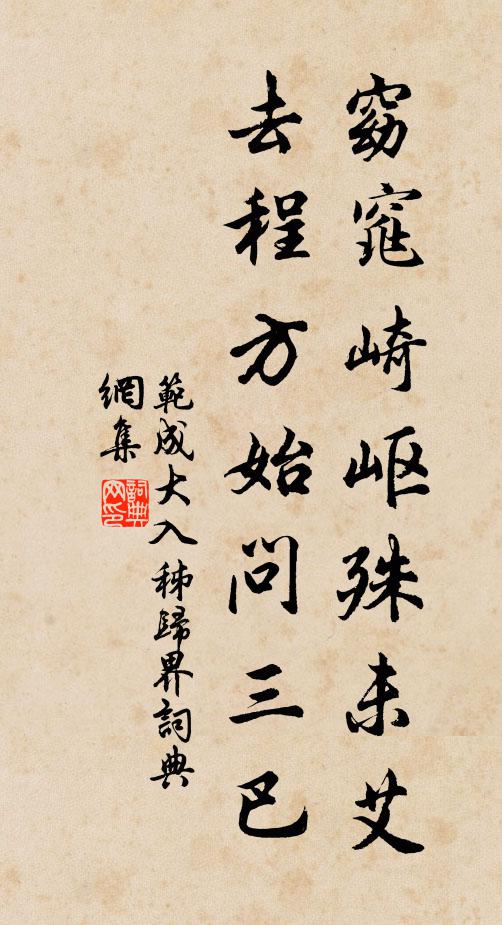 窈窕崎岖殊未艾
去程方始問三巴
範成大入秭歸界詞典
網集
詞典
网印